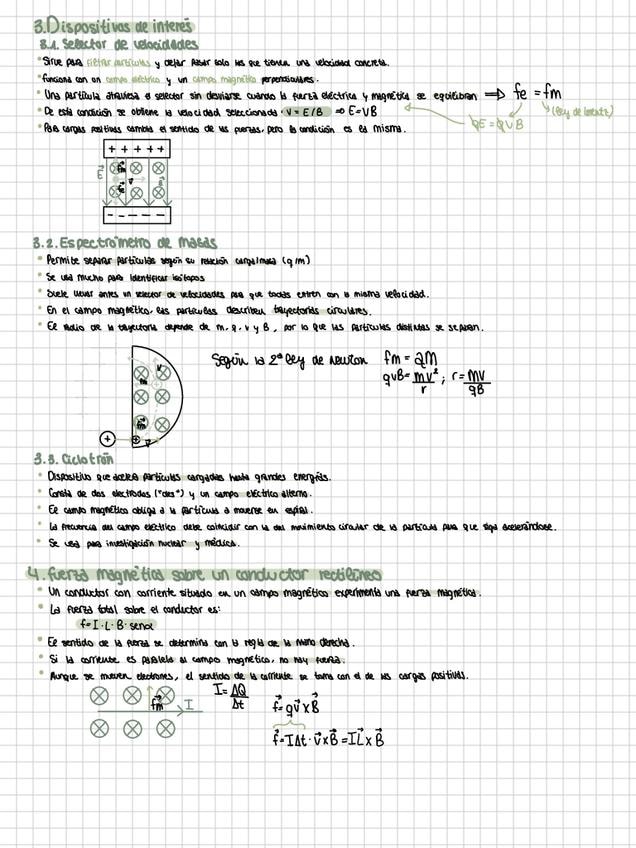 3. Dispositivos de interés
3.1. Selector de velocidades
Sirve para filtrar partículas y dejar pasar solo las que tienen una velocidad concreta.
Funciona con un campo eléctrico y un campo magnético perpendiculares.
Una partícula atraviesa el selector sin desviarse cuando la fuerza eléctrica y magnética se equilibran ⇒ fe = fm
(ley de lorentz)
De esta condición se obtiene la velocidad seleccionada: V = E/B ⇒ E=VB
qE = qVB
Para cargas positivas cambia el sentido de las fuerzas, pero la condición es la misma.
+ + + + +
fm
fe
- - - - -
3.2. Espectrómetro de masas
Permite separar partículas según su relación carga/masa (q/m)
Se usa mucho para identificar isótopos
Suele llevar antes un selector de velocidades para que todas entren con la misma velocidad.
En el campo magnético, las partículas describen trayectorias circulares.
El radio de la trayectoria depende de m, q, v y B, por lo que las partículas distintas se separan.
Según la 2ª ley de newton fm = am
qvB = mv²/r ; r = mv/qB
v
fm
fm
+
v
3.3. Ciclotrón
Dispositivo que acelera partículas cargadas hasta grandes energías.
Consta de dos electrodos ("des") y un campo eléctrico alterno.
El campo magnético obliga a la partícula a moverse en espiral.
La frecuencia del campo eléctrico debe coincidir con la del movimiento circular de la partícula para que siga acelerándose.
Se usa para investigación nuclear y médica.
4. fuerza magnética sobre un conductor rectilíneo
Un conductor con corriente situado en un campo magnético experimenta una fuerza magnética.
La fuerza total sobre el conductor es:
f= I·L·B·senα
El sentido de la fuerza se determina con la regla de la mano derecha.
Si la corriente es paralela al campo magnético, no hay fuerza.
Aunque se mueven electrones, el sentido de la corriente se toma con el de las cargas positivas.
fm I
I = ΔQ/Δt
f = qv x B
f = IΔt · v x B = IL x B